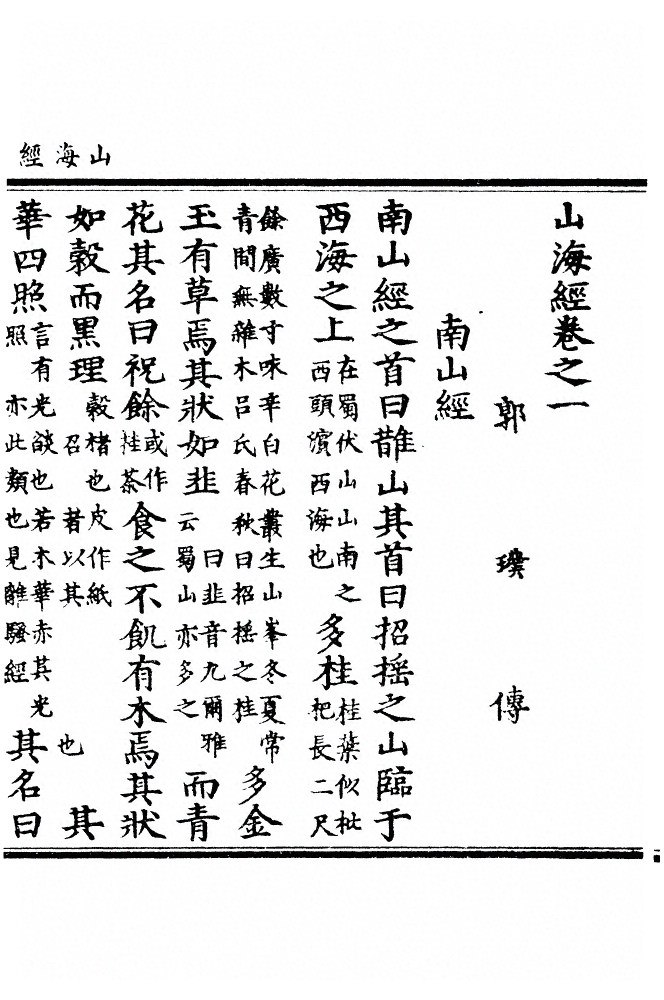 山海經
山海經卷之一
郭璞傳
南山經
南山經之首曰䧿山其首曰招搖之山臨于
西海之上在蜀伏山山南之西頭濱西海也多桂桂葉似枇杷長二尺
餘廣數寸味辛白花叢生山峯冬夏常青間無雜木呂氏春秋曰招搖之桂多金
玉有草焉其狀如韭曰韭音九爾雅云蜀山亦多之而青
花其名曰祝餘或作桂荼食之不飢有木焉其狀
如榖而黑理榖楮也皮作紙召者以其也其
華四照言有光燄也若木華赤其光照亦此類也見離騷經其名曰